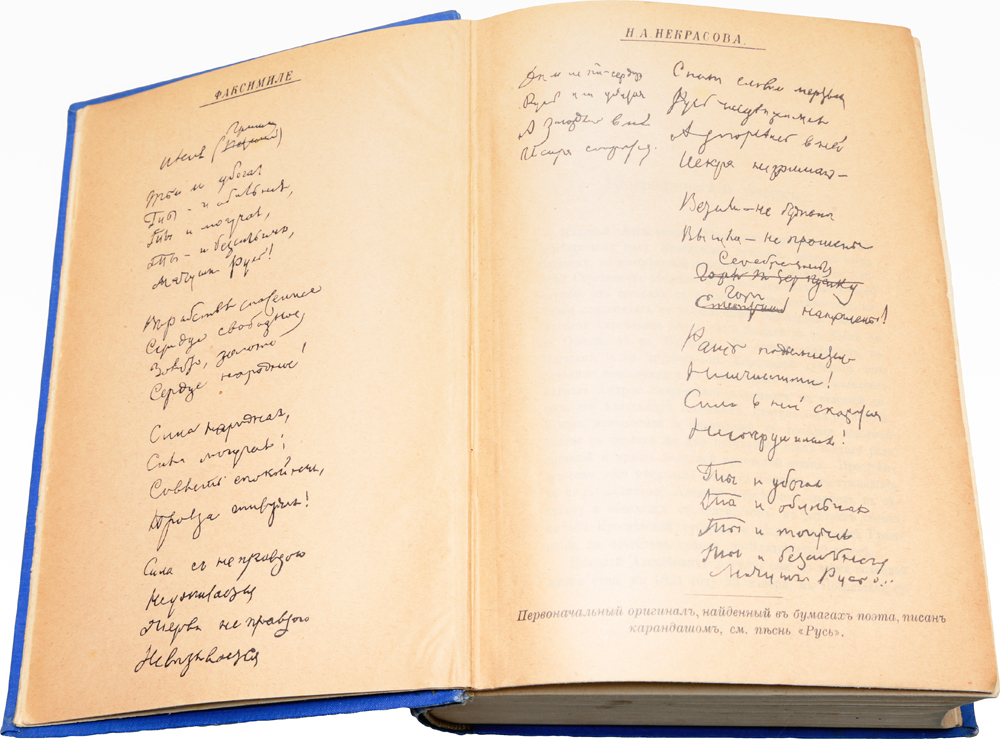 ФАКСИМИЛЕ
Гриша
Ты и убогая
Ты - и обильная,
Ты и могучая,
Ты - и безсильная,
Матушка Русь!
Въ рабстве спасенное
Сердце свободное,
Золото, золото
Сердце народное!
Сила народная,
Сила могучая;
Совесть спокойная,
Правда живучая!
Сила съ неправдою
Неуживается
Жертва неправдою
Невызывается
Н. А. НЕКРАСОВА.
Русь не убитая
А
Искра сокрытая.
Русь недвижимая
А загорелась в ней
Искра незримая—
Встали—не бужены
Вышли—не прошены
Горы
наношены!
Рать подымается
Неисчислимая!
Сила в ней скажется
Несокрушимая!
Ты и убогая
Ты и обильная
Ты и
Ты и безсильная
Матушка Русь...
Первоначальный оригиналъ, найденный въ бумагахъ поэта, писанъ
карандашомъ, см. пѣснь «Русь».